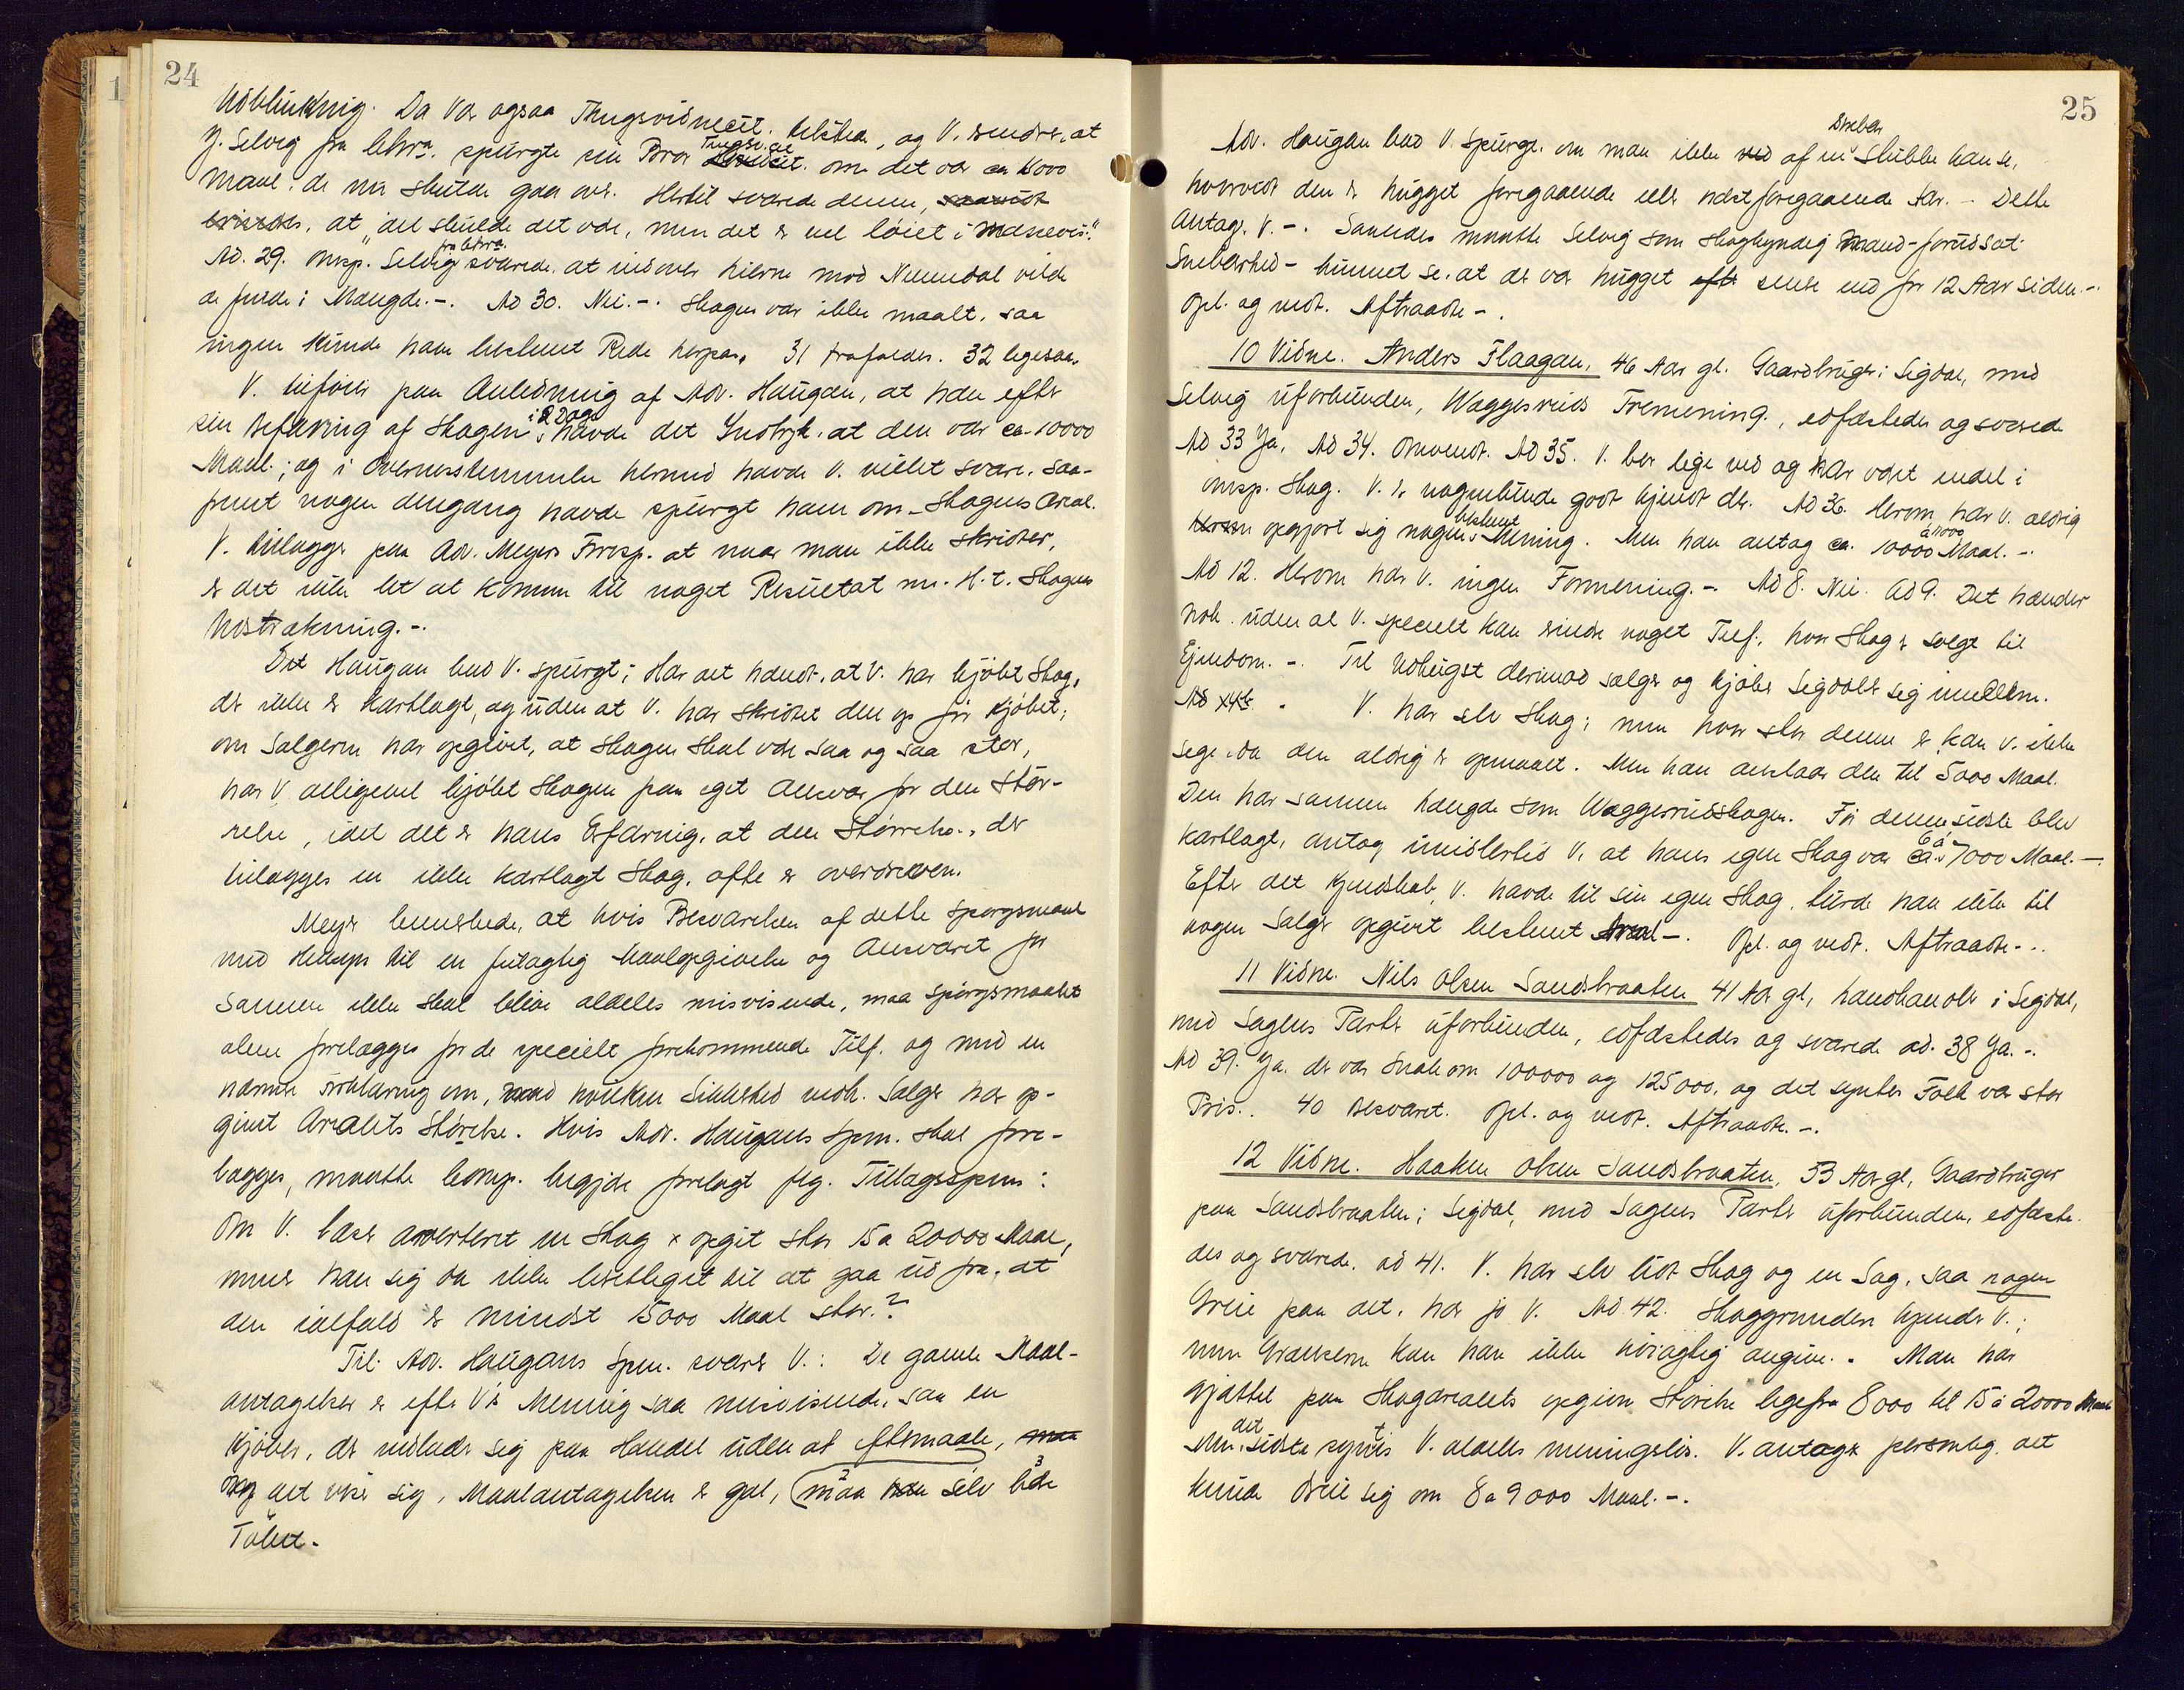 24
Udblinkning. Da var ogsaa Thugsrudneset. tilstede, og V. erindrer, at
J. Selvig fra spurgte sin Bror om det var ca 15000
Maal. de nu skulde gaa over. Hertil svarede denne,
at "det skulde det være, men det er vel løiet i Mansevis."
Ad. 29. omsp. Selvig svarede. at indover hierne mod Numedal vilde
de finde i Mængde.-. Ad 30. Nei.-. Skogen var ikke maalt, saa
ingen kunde have bestemt Rede herpaa. 31 frafaldes. 32 ligesaa.
V. tilføier paa Anledning af Adv. Haugan, at han efter
sin Befaring af Skogen i 2 Dage havde det Indtryk, at den var ca. 10000
Maal.; og i Overensstemmelse hermed havde V. villet svare, saa-
fremt nogen dengang havde spurgt ham om Skogens Areal.
V. tillægger paa Adv. Meyers Foresp. at naar man ikke skridter,
er det ikke let at komme til noget Resultat m. H. t. Skogens
Udstrækning.-.
Adv. Haugan bad V. spurgt: Har det hændt, at V. har kjøbt Skog,
der ikke er kartlagt, og uden at V. har skridtet den op før Kjøbet;
om Sælgeren har opgivet, at Skogen skal være saa og saa stor,
har V. alligevel kjøbt Skogen paa eget Ansvar for den Stør-
relse, idet det er hans Erfaring, at den Størrelse, der
tillægges en ikke kartlagt Skog, ofte er overdreven.
Meyer bemerkede, at hvis Besvarelsen af dette Spørgsmaal
med Hensyn til en feilagtig Maalopgivelse og Ansvaret for
samme ikke skal blive aldeles misvisende, maa Spørgsmaalet
alene forelægges for de specielt forekommende Tilf. og med en
nærmere Forklaring om, med hvilken Sikkerhed vedk. Sælger har op-
givet Arealets Størrelse. Hvis Adv. Haugans Spm. skal fore-
lægges, maatte Comp. begjære forelagt flg. Tillægsspm:
Om V. læser averteret en Skog x opgit stor 15 a 20000 Maal,
mener han sig da ikke berettiget til at gaa ud fra, at
den ialfald er mindst 15000 Maal stor.?
Til Adv. Haugans Spm. svarer V.: De gamle Maal-
antagelser er efter V's Mening saa misvisende, saa en
Kjøber, der indlader sig paa Handel uden at eftermaale,
og det viser sig, Maalantagelsen er gal, maa selv lide
Tabet.-
25
Adv. Haugan bad V. spurgt. om man ikke af en Stubbe kan se,
hvorvidt den er hugget foregaaende eller næstforegaaende Aar. - Dette
antager V.-. Saaledes maatte Selvig som skogkyndig Mand - forudsat
Snebarhed - kunnet se, at der var hugget senere end for 12 Aar siden.-
Opl. og vedt. Aftraadte-.
10 Vidne. Anders Flaagan, 46 Aar gl. Gaardbruger i Sigdal, med
Selvig uforbunden, Waggesruds Tremening, edfæstedes og svarede
Ad 33 Ja. Ad 34. Omvendt. Ad 35. V. bor lige ved og har været endel i
omsp. Skog. V. er nogenlunde godt kjendt der. Ad 36. Herom har V. aldrig
opgjort sig nogen bestemt Mening. Men han antog ca. 10000 Maal.-.
Ad 12. Herom har V. ingen Formening.-. Ad 8. Nei. Ad 9. Det hænder
nok. uden at V. specielt kan erindre noget Tilf., hvor Skog er solgt til
Ejendom.-. Til Udhugst derimod sælger og kjøber Sigdøler sig imellem.
V. har selv Skog; men hvor stor denne er, kan V. ikke
sige, da den aldrig er opmaalt. Men han anslaar den til 5000 Maal.
Den har samme Længde som Waggesrudskogen. Før denne sidste blev
kartlagt, antog imidlertid V. at hans egen Skog var 6 à 7000 Maal.-.
Efter det Kjendskab, V. havde til sin egen Skog, turde han ikke til
nogen Sælger opgivet bestemt Areal-. Opl. og vedt. Aftraadte-..
11 Vidne. Nils Olsen Sandsbraaten 41 Aar gl, Landhandler i Sigdal,
med Sagens Parter uforbunden, edfæstedes og svarede ad. 38 Ja.-.
Ad 39. Ja. der var Snak om 100000 og 125000, og det syntes Folk var stor
Pris.. 40 Besvaret. Opl. og vedt. Aftraadte.-.
12 Vidne. Haaken Olsen Sandsbraaten, 53 Aar gl, Gaardbruger
paa Sandsbraaten i Sigdal, med Sagens Parter uforbunden, edfæste-
des og svarede. ad 41. V. har selv lidt Skog og en Sag, saa nogen
Greie paa det, har jo V. Ad 42. Skoggrunden kjender V.;
men Grænserne kan han ikke nøiagtig angive.- Man har
gjættet paa Skogarealets opgivne Størrelse ligefra 8000 til 15 à 20000 Maal
Men det sidste synes V. aldeles meningsløs. V. antager personlig, det
kunde dreie sig om 8 a 9000 Maal.-.